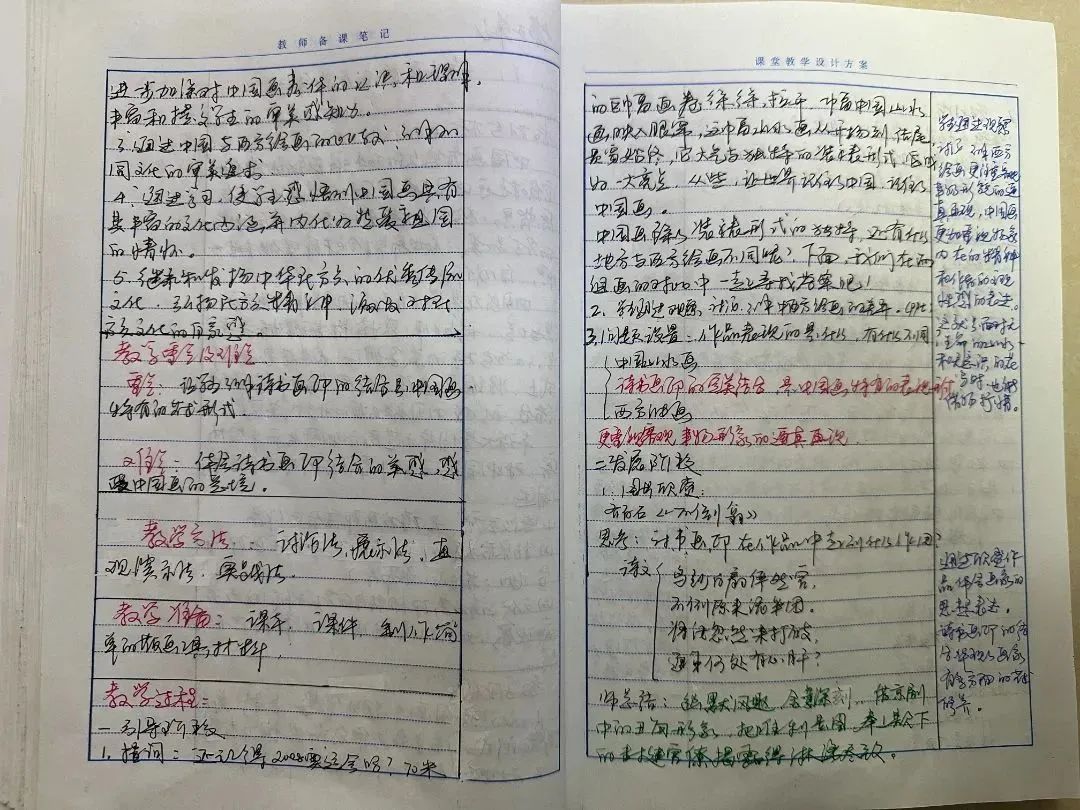 教师备课笔记
进一步加深对中国画表体的认识和理解,
丰富和提高学生的审美感知力。
3、通过中国与西方绘画的比较,了解不
同文化的审美追求
4、通过学习,使学生感悟到中国画具有
其丰富的文化内涵,并内化为热爱祖国
的情怀。
5、继承和发扬中华民族的优秀传统
文化,弘扬民族精神,激发对民
族文化的自豪感。
教学重点及难点
重点:认识了解诗书画印的结合是中国画
特有的艺术形式.
难点:体会诗书画印结合的美感,感
受中国画的意境。
教学方法:讨论法,展示法,直
观演示法.
教学准备:课本,课件 制作简
单的版画工具材料.
教学过程:
一引导阶段
1.提问:还记得2008奥运会吗?70米
课堂教学设计方案
的巨幅画卷徐徐拉开,一幅中国山水
画映入眼帘,这幅山水画从开场到结尾
贯穿始终,它大气与独特的装裱形式,成
为一大亮点,从此,让世界记住了中国,记住了
中国画。
中国画除了装裱形式的独特,还有什么
地方与西方绘画不同呢?下面,我们在两
组画的对比中一起寻找答案吧!
2、学生通过观察,讨论了解中西方绘画的差异.
3、问题设置:作品表现的是什么,有什么不同
中国山水画
诗书画印的完美结合,是中国画特有的表现形式
西方油画
更重的展现事物形象的逼真再现
二发展阶段
1、图片欣赏:
齐白石《不倒翁》
思考:诗书画印在作品中起到什么作用?
诗文
乌纱白扇俨然官,
不倒原来泥半团。
将汝忽然来打破,
通身何处有心肝?
师总结:幽默风趣,含意深刻...借京剧
中的丑角形象,把
的封建官僚揭露得淋漓尽致。
学生通过观察
讨论了解西方
绘画更注重事
物形貌的逼
真再现,中国画
更加重视物象
内在的精神
和作者的
情感的表达。
通过欣赏作
品体会画家的
思想表达。
诗书画印的结
合体现了画家
有多方面的艺术
修养。